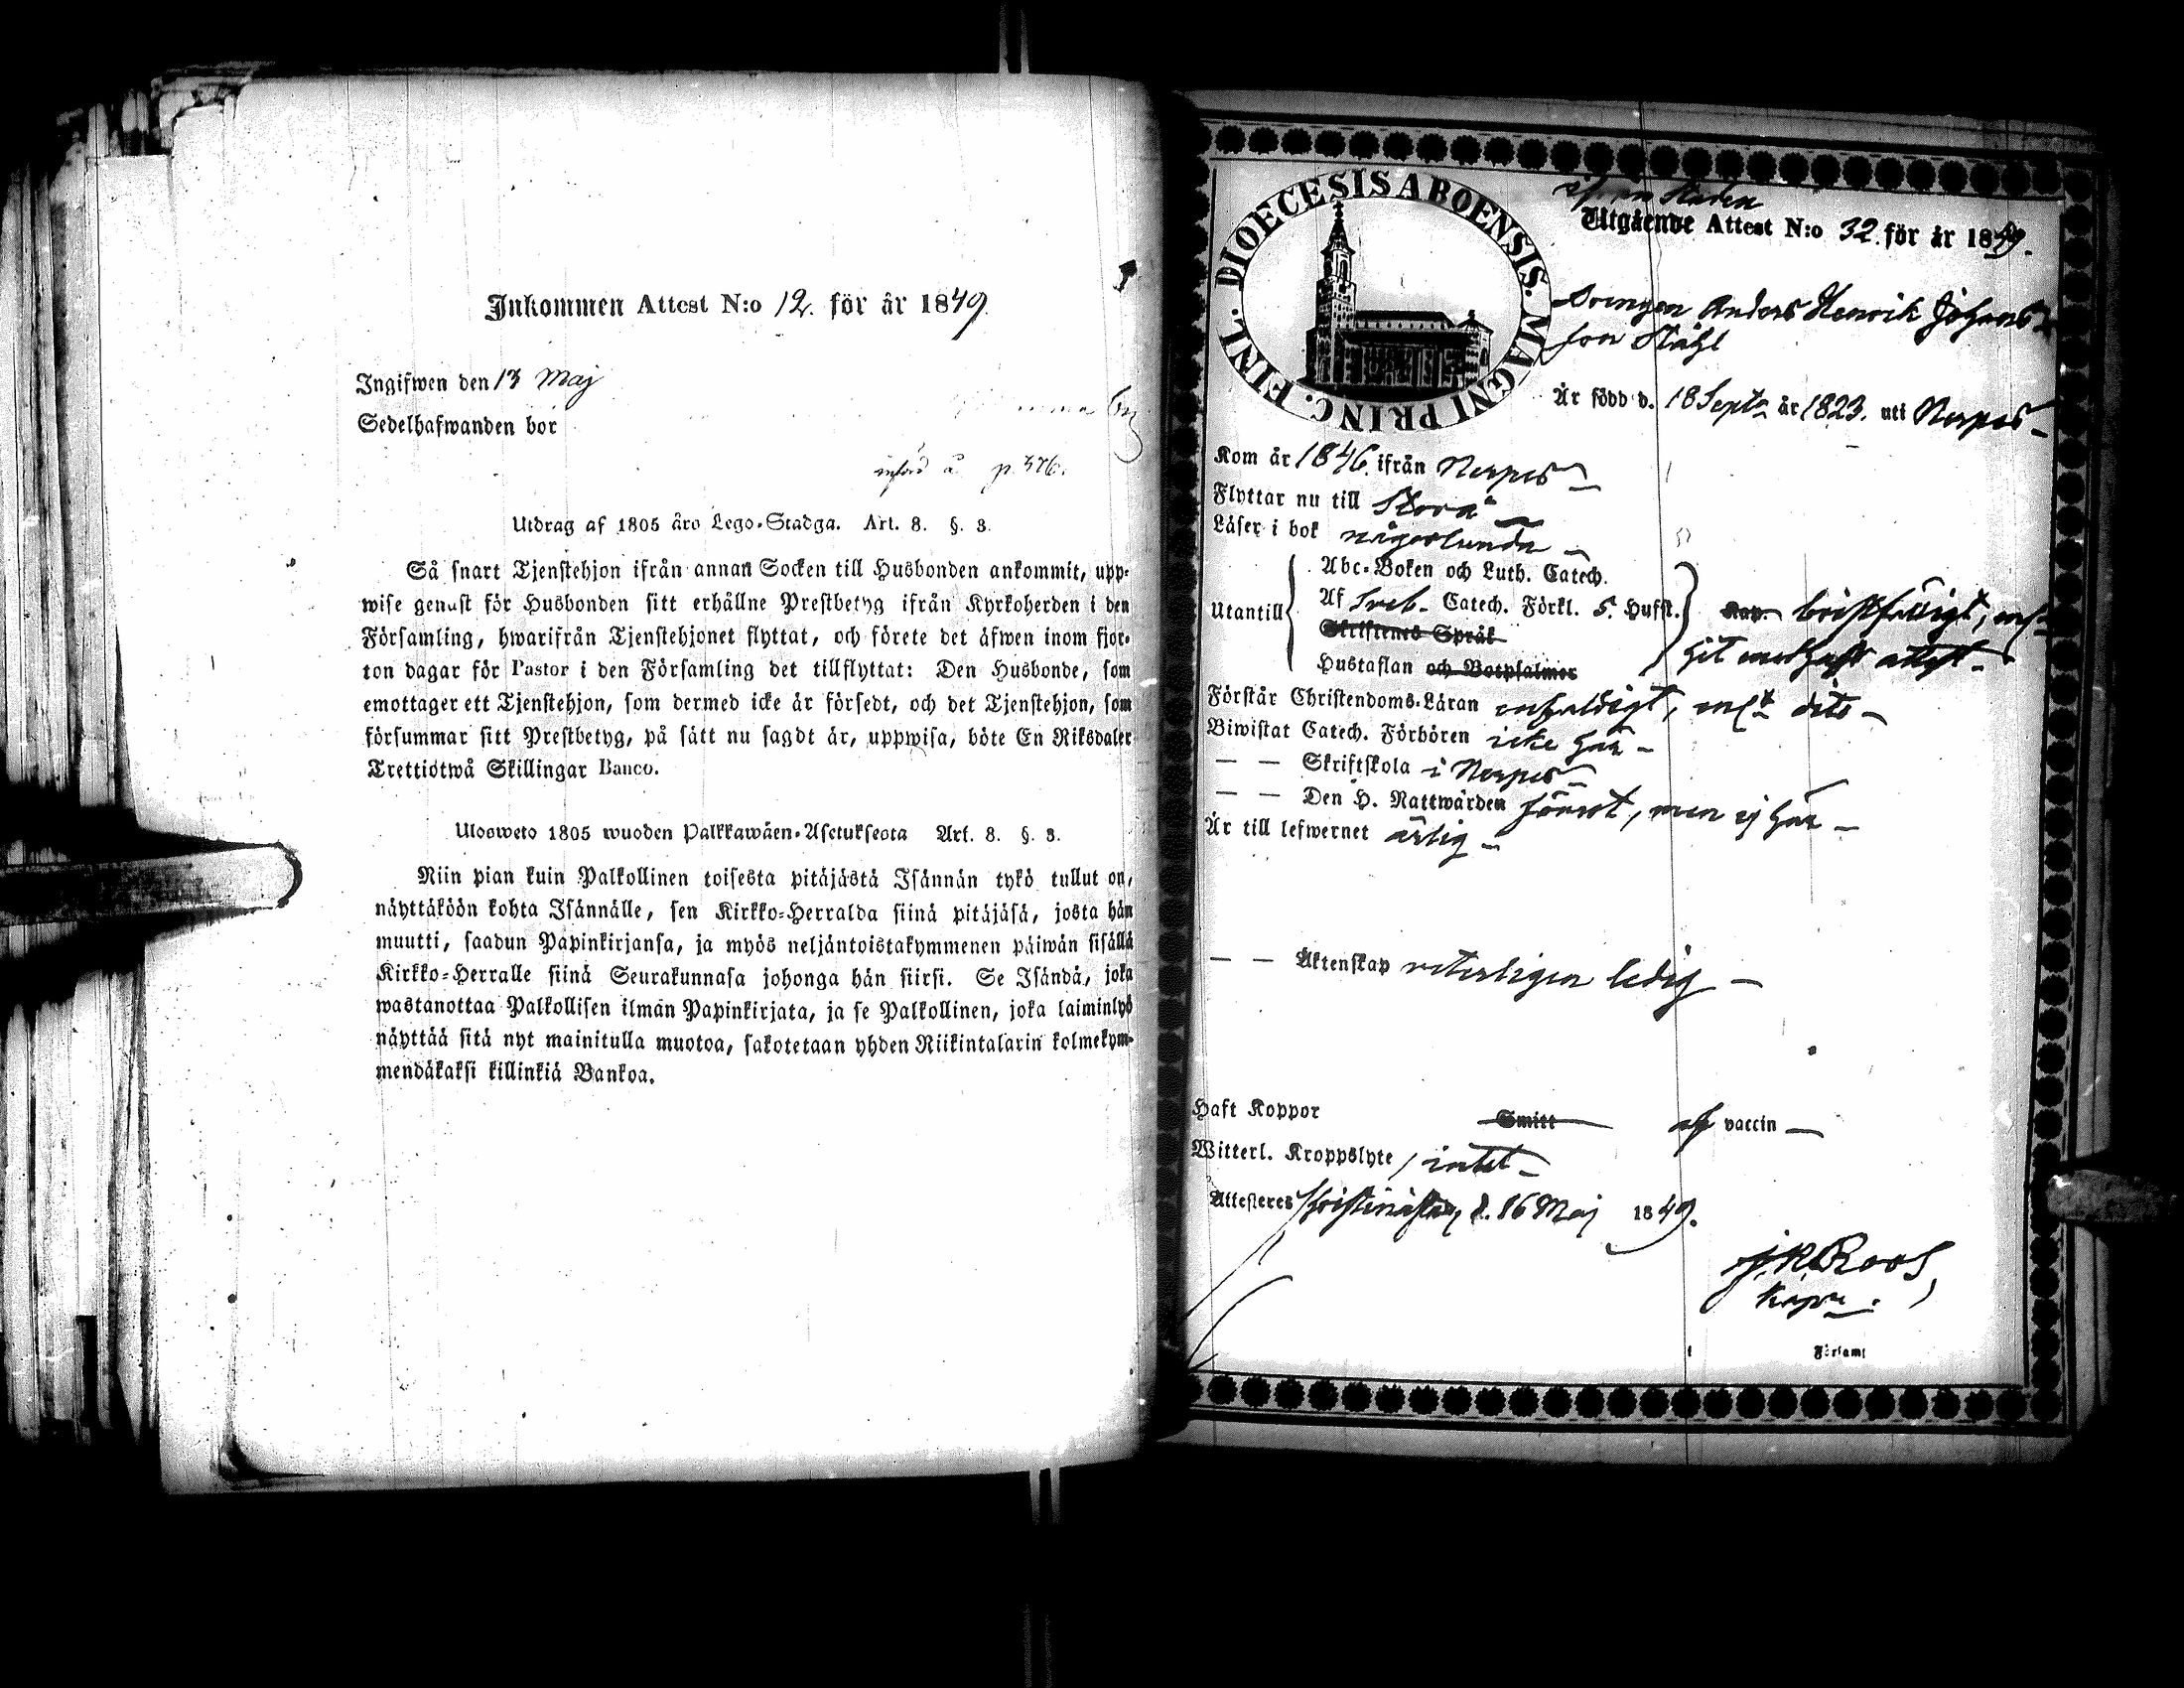 Inkommen Attest N:o 12. för år 1849.
Ingifwen den 13 Maj
Sedelhafwanden bor
införd å p. 376.
Utdrag af 1805 åro Lego-Stadga. Art. 8. §. 3.
Så snart Tjenstehjon ifrån annan Socken till Husbonden ankommit, upp-
wise genast för Husbonden sitt erhållne Prestbetyg ifrån Kyrkoherden i den
Församling, hwarifrån Tjenstehjonet flyttat, och förete det äfwen inom fjor-
ton dagar för Pastor i den Församling det tillflyttat: Den Husbonde, som
emottager ett Tjenstehjon, som dermed icke är försedt, och det Tjenstehjon, som
försummar sitt Prestbetyg, på sätt nu sagdt är, uppwisa, böte En Riksdaler
Trettiotwå Skillingar Banco.
Ulosweto 1805 wuoden Palkkawäen-Asetuksesta Art. 8. §. 3.
Niin pian kuin Palkollinen toisesta pitäjästä Isännän tykö tullut on,
näyttäköön kohta Isännälle, sen Kirkko-Herralda siinä pitäjäsä, josta hän
muutti, saadun Papinkirjansa, ja myös neljäntoistakymmenen päiwän sisällä
Kirkko-Herralle siinä Seurakunnasa johonga hän siirsi. Se Isändä, joka
wastanottaa Palkollisen ilman Papinkirjata, ja se Palkollinen, joka laiminlyö
näyttää sitä nyt mainitulla muotoa, sakotetaan yhden Riikintalarin kolmekym-
mendäkaksi killinkiä Bankoa.
DIOECESIS ABOENSIS. MAGNI PRINC. FINL.
ifrån Staden
Utgående Attest N:o 32. för år 1849.
Drengen Anders Henrik Johans-
son Ståhl
Är född d. 18 Septr år 1823. uti Nerpes
Kom år 1846. ifrån Nerpes
Flyttar nu till Storå
Läser i bok någorlunda
Utantill
Abc-Boken och Luth. Catech.
Af Sveb. Catech. Förkl. 5. Hufst.
Skriftenes Språk
Hustaflan och Botpsalmer
bristfälligt, enl.
hit medhaft attest
Förstår Christendoms-Läran enfaldigt, enlt dito
Biwistat Catech. Förhören icke här
— — Skriftskola i Nerpes
— — Den H. Nattwarden förut, men ej här
Är till lefwernet ärlig
— — Äktenskap veterligen ledig
Haft Koppor Smitt af vaccin
Witterl. Kroppslyte intet
Attesteres Christinæstad d. 16 Maj 1849.
J. R. Roos
Kapn.
Församl